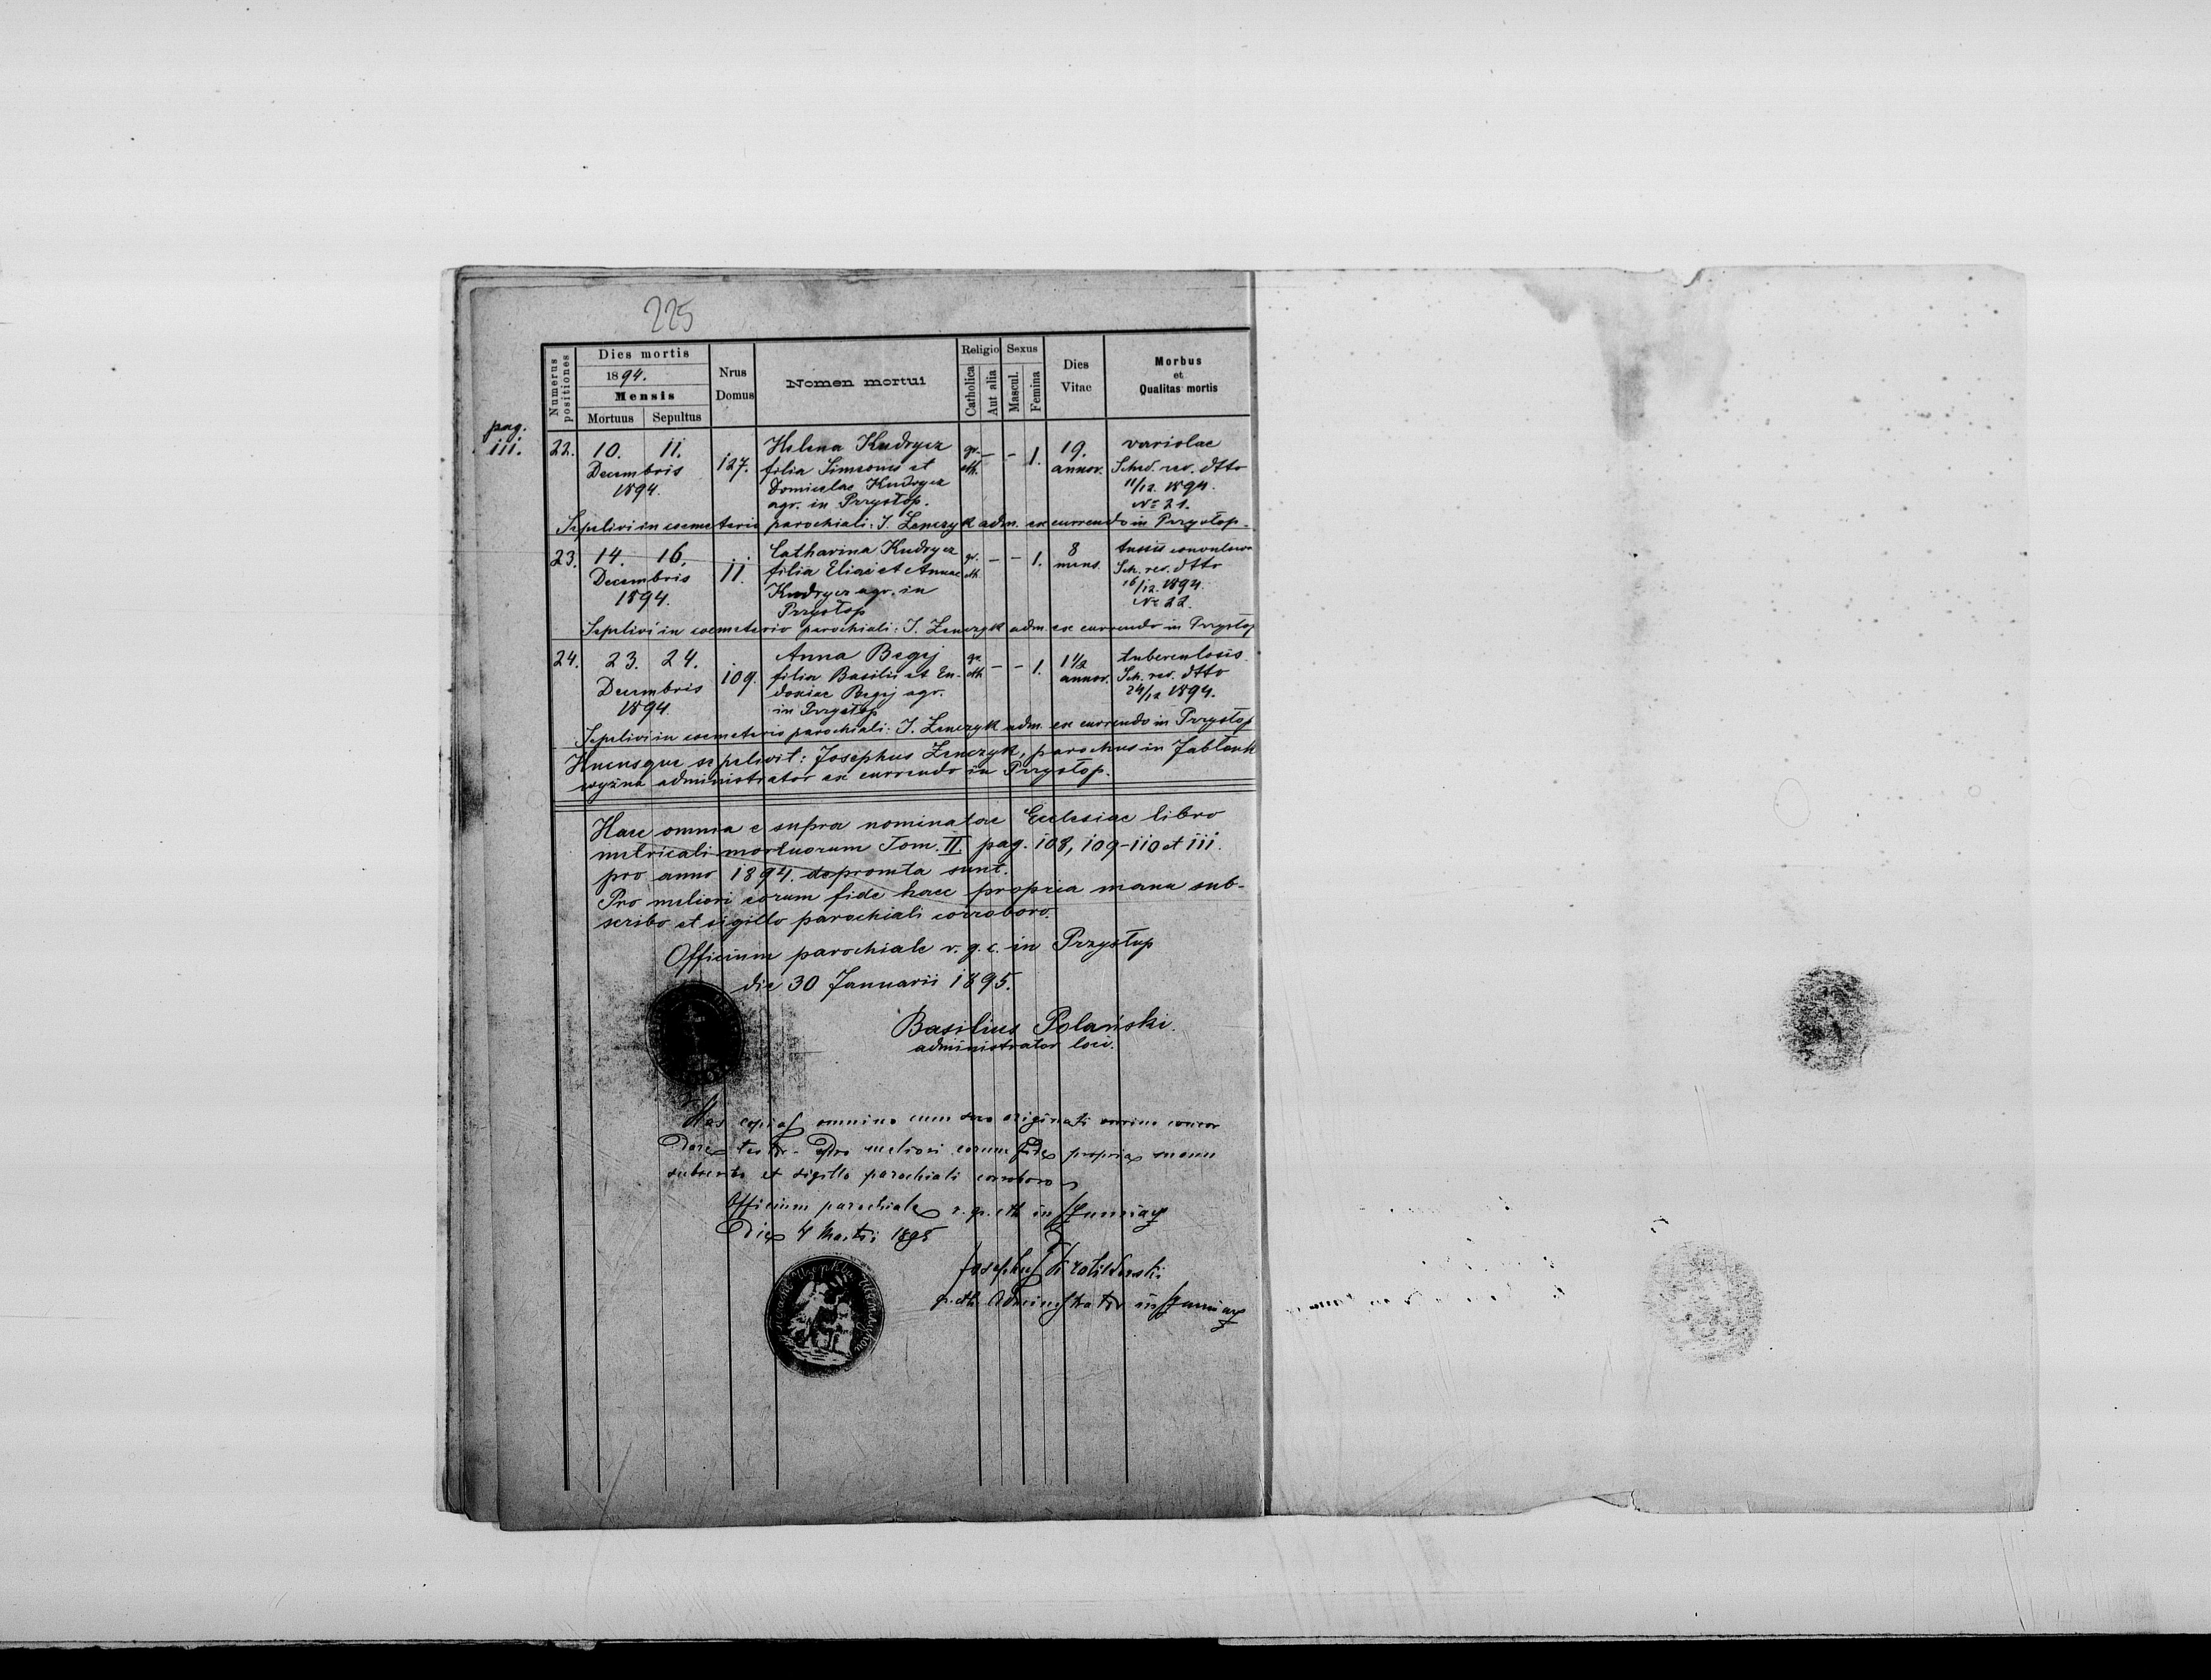 225
Numerus positiones
Dies mortis
1894.
Mensis
Mortuus Sepultus
Nrus Domus
Nomen mortui
Religio
Catholica
Aut alia
Sexus
Mascul.
Femina
Dies Vitae
Morbus et Qualitas mortis
pag.
111.
22. 10. 11. 127. Helena Kudrycz gr. cth. – – 1. 19. variolae
Decembris filia Simeonis et annor. Sched. rev. dtto
1894. Domicelae Kudrycz 11/12. 1894.
agr. in Przysłop. № 21.
Sepelivi in coemeterio parochiali: J. Zenczyk adm. ex currendo in Przysłop.
23. 14. 16. 11. Catharina Kudrycz gr. cth. – – 1. 8 tussis convulsiva
Decembris filia Eliae et Annae mens. Sch. rev. dtto
1894. Kudrycz agr. in 16/12. 1894.
Przysłop № 22.
Sepelivi in coemeterio parochiali: J. Zenczyk adm. ex currendo in Przysłop
24. 23. 24. 109. Anna Begej gr. cth – – 1. 1 1/2 tuberculosis.
Decembris filia Basilii et Eu- annor. Sch. rev. dtto
1894. doxiae Begej agr. 24/12 1894.
in Przysłop
Sepelivi in coemeterio parochiali: J. Zenczyk adm. ex currendo in Przysłop
Hucusque sepelivit: Josephus Zenczyk, parochus in Jabłonk
wyżna administrator ex currendo in Przysłop.
Haec omnia e supra nominatae Ecclesiae libro
metricali mortuorum Tom. II. pag. 108, 109-110 et 111.
pro anno 1894. depromta sunt.
Pro meliori eorum fide haec propria manu sub-
scribo et sigillo parochiali corroboro.
Officium parochiale r. g. c. in Przysłup
die 30 Januarii 1895.
Basilius Polański.
administrator loci.
Has copias omnino cum suo originali concor
dare testor. Pro meliori eorum fide propria manu
subscribo et sigillo parochiali corroboro
Officium parochiale r. gr. cth in
Die 4 Martii 1895
Josephus
gr. cth. Administrator in